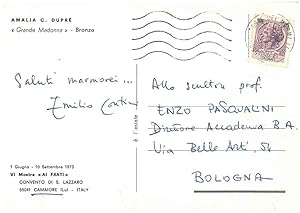 AMALIA C. DUPRÉ
« Grande Madonna » - Bronzo
Saluti marmorei...
Emilio Contini
Allo scultore prof.
ENZO PASQUALINI
Direttore Accademia B.A.
Via Belle Arti, 54
BOLOGNA
1 Giugno - 10 Settembre 1973
VI Mostra «AI FRATI»
CONVENTO DI S. LAZZARO
55041 CAMAIORE (Lu) - ITALY